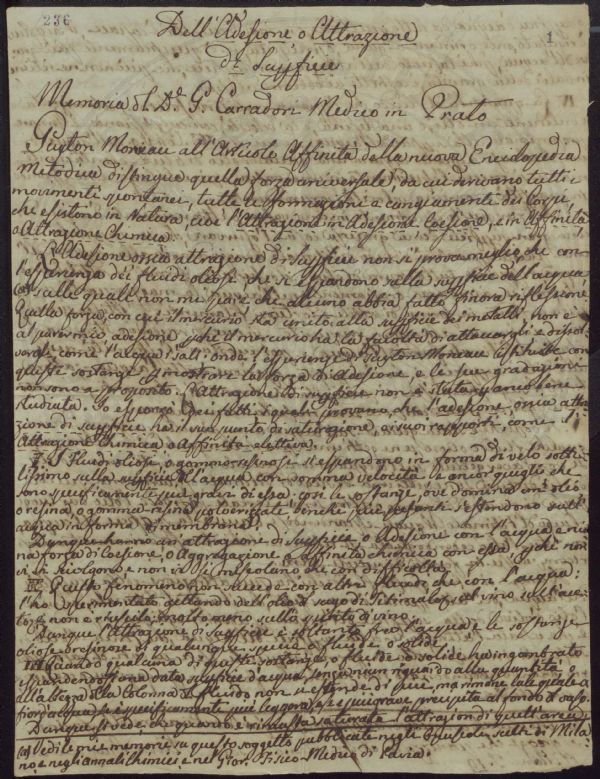 236
1
Dell'Adesione, o Attrazione
di Supficie
Memoria del Dr. G. Carradori Medico in Prato
Guyton Morveau all'Articolo Affinità della nuova Enciclopedia
Metodica distingue quella forza universale, da cui derivano tutti i
movimenti spontanei, tutte le formazioni e cangiamenti dei Corpi,
che esistono in Natura, cioè l'Attrazione in Adesione, Coesione, e in Affinità,
o Attrazione Chimica.
L'Adesione ossia attrazione di Supficie non si prova meglio, che con
l'esperienza dei fluidi oliosi che si espandono sulla supficie dell'acqua
(a) sulle quali non mi pare che alcuno abbia fatto finora riflessione
Quella forza, con cui il mercurio sta unito alla supficie dei metalli, non è
al parer mio, adesione, pchè il mercurio ha la facoltà di attaccargli e dissol-
vergli come l'acqua i sali: onde l'esperienze di Guyton Morveau con
queste sostanze p mostrare la forza di Adesione, e le sue gradazioni
non sono a proposito. L'Attrazione di supficie non è stata p anco bene
studiata. Io esporrò quei fatti, i quali provano, che l'adesione, ossia attra-
zione di supficie ha il suo punto di saturazione, e i suoi rapporti, come l'
Attrazione Chimica o Affinità elettiva.
I. I Fluidi oliosi, o gommo-resinosi si espandono in forma di velo sotti-
lissimo sulla supficie dell'acqua con somma velocità, e ancor quegli che
sono specificamente più gravi di essa: così le sostanze, ove domina un olio
o resina, o gomma-resina polverizzate, benchè più pesanti s'estendono sull'
acqua in forma di membrana.
Dunque hanno un'attrazione di Supficie, o Adesione con l'acqua e niu-
na forza di Coesione, o Aggregazione, o Affinità chimica con essa, pchè non
vi si sciolgono e non vi si mescolano che con difficoltà.
II. Questo fenomeno non succede con altri fluidi che con l'acqua:
l'ho sperimentato gettando dell'olio, e sugo di Titimalo sul vino, sull'ace-
to, e non è riuscito: molto meno sullo spirito di vino.
Dunque l'Attrazione di supficie è soltanto fra l'acqua, e le sostanze
oliose, o resinose di qualunque specie o fluide, o solide.
III. Quando qualcuna di queste sostanze, o fluide, o solide ha ingombrato
espandendosi una data supficie d'acqua, senza niun riguardo alla quantità, o
all'altezza della colonna del fluido non si estende di più, ma rimane tale quale a
fior d'acqua, se è specificamente più leggera, o se più grave, precipita al fondo del vaso.
Dunque si vede che quando è rimasta saturata l'attrazion di quell'area
(a) Vedi le mie memorie su questo soggetto pubblicate negli Opuscoli scelti di Mila-
no e negli Annali Chimici, e nel Gior. Fisico-Medico di Pavia.